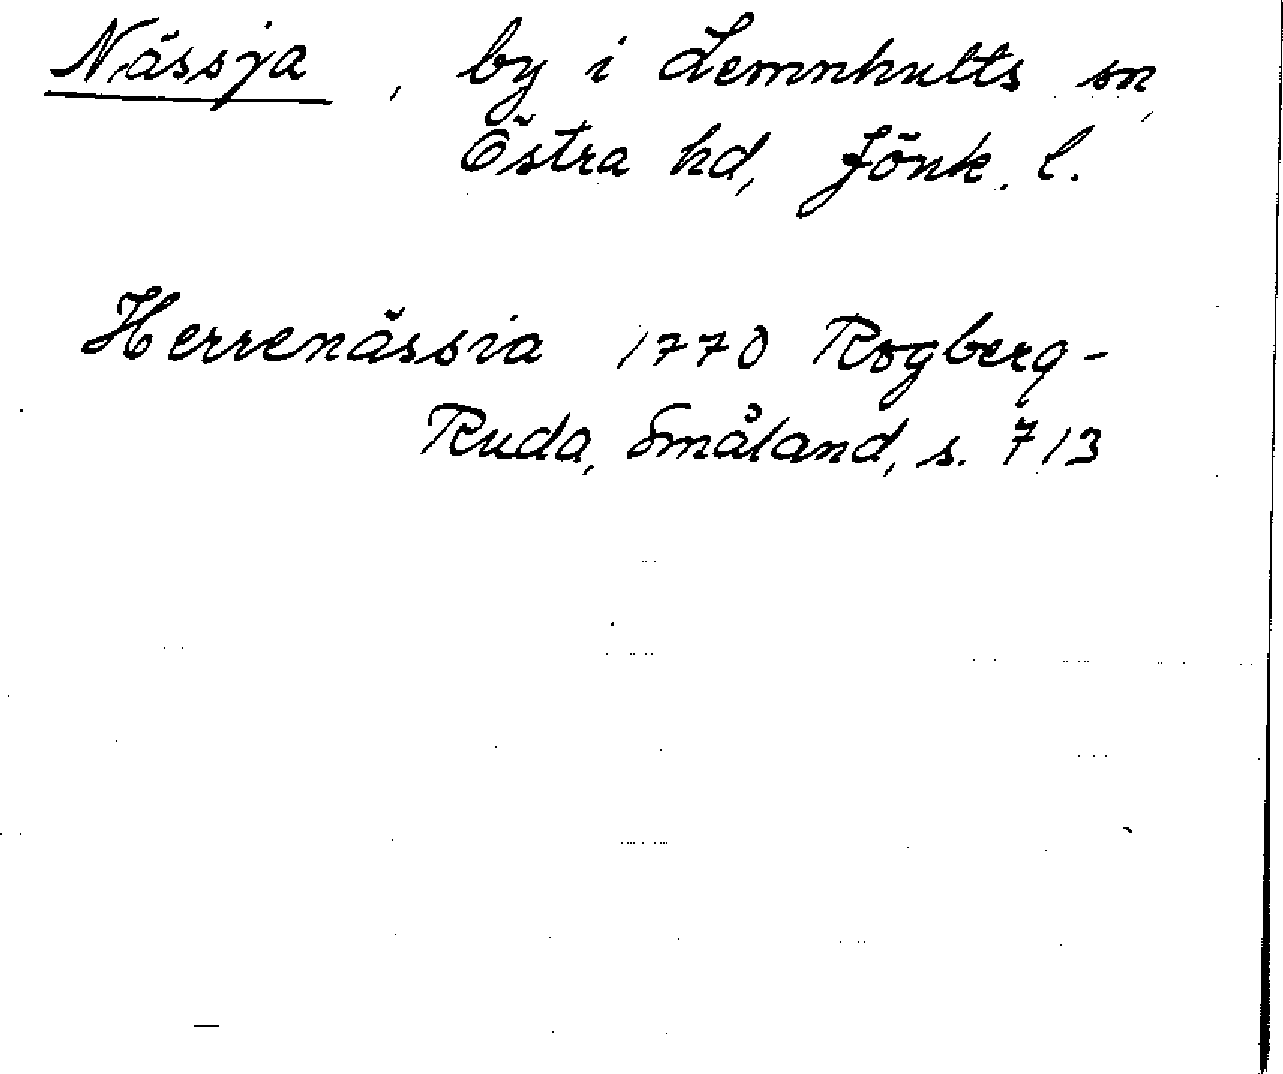 Nässja, by i Lemnhults sn,
Östra hd, Jönk. l.
Herrenässia 1770 Rogberg-
Ruda, Småland, s. 713